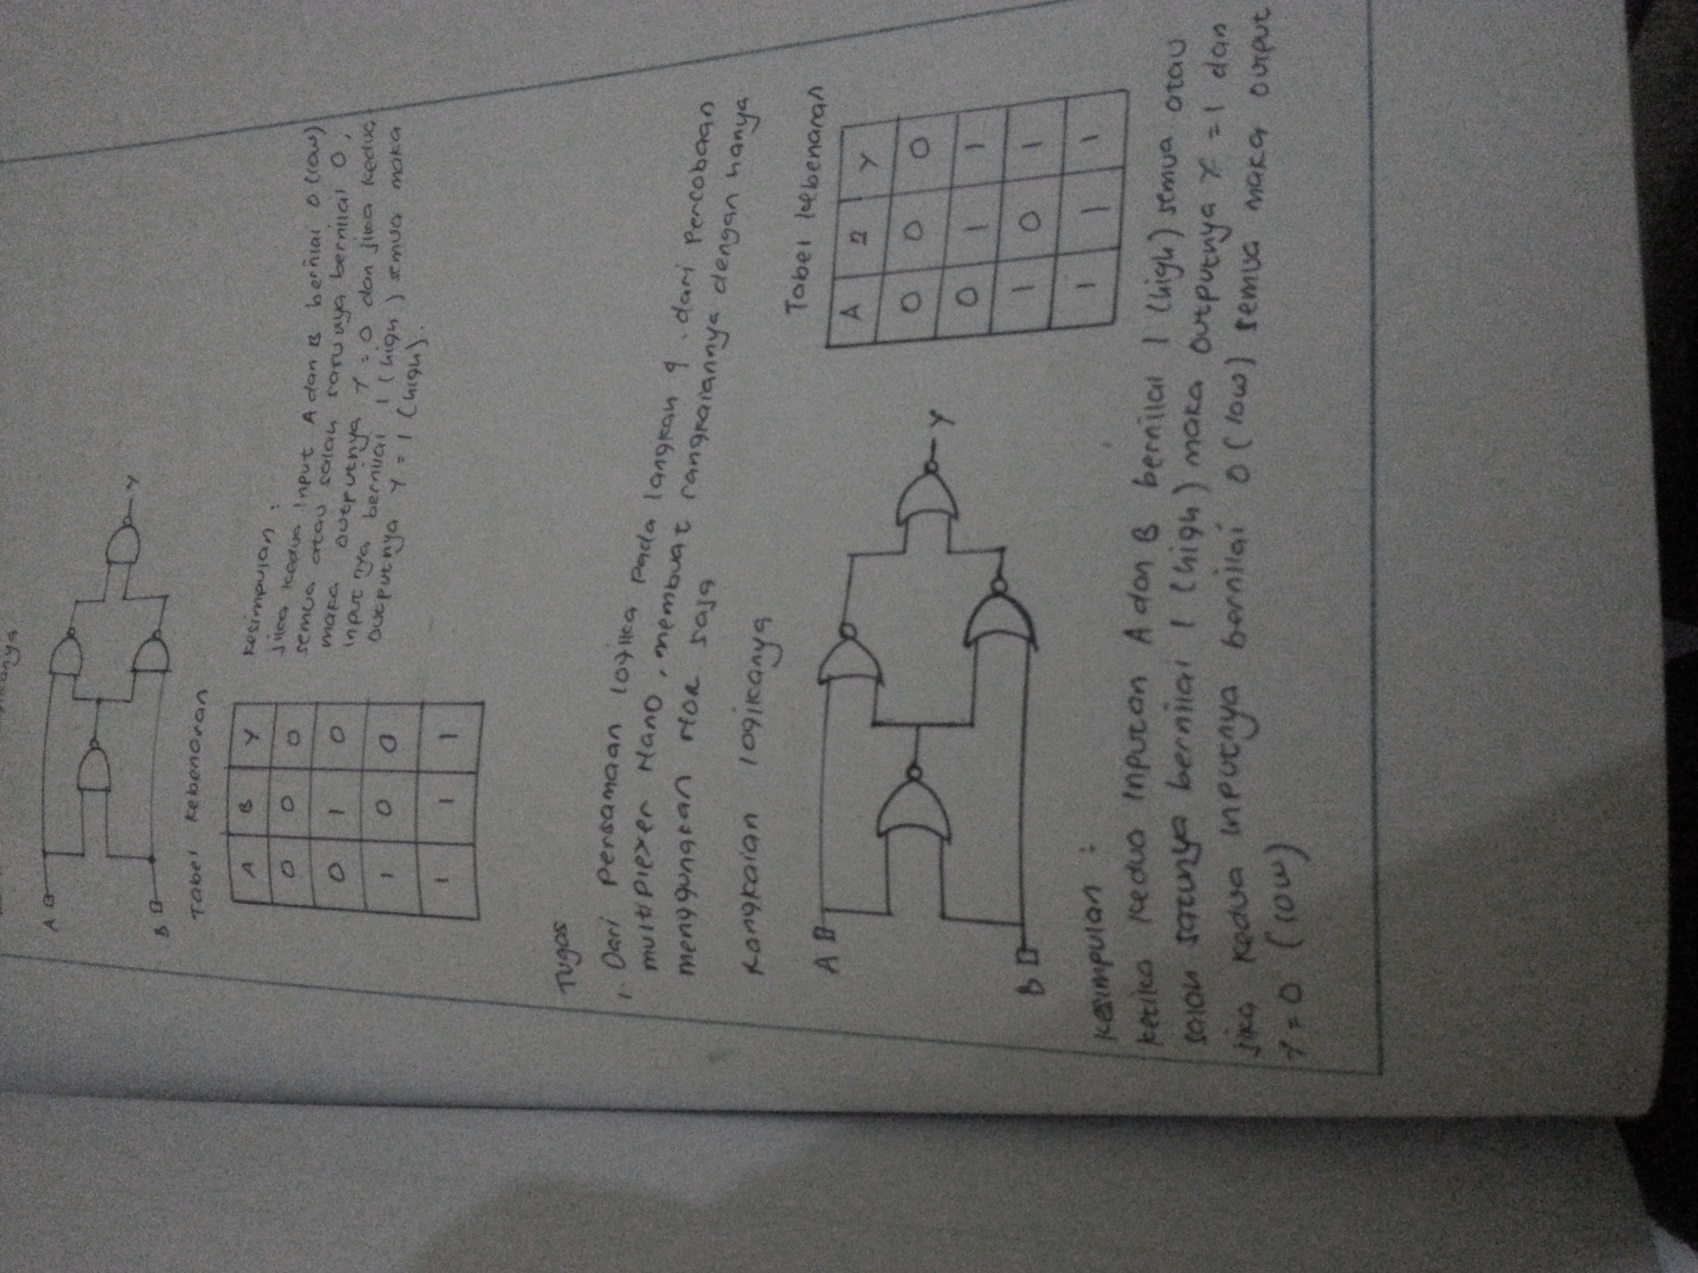 A
B
Y
Tabel kebenaran
A B Y
0 0 0
0 1 0
1 0 0
1 1 1
Kesimpulan :
Jika kedua Input A dan B bernilai 0 (low)
semua atau salah satunya bernilai 0,
maka outputnya Y = 0 dan jika kedua
input nya bernilai 1 (high) semua maka
outputnya Y = 1 (high).
Tugas
1. Dari persamaan logika pada langkah 9. dari Percobaan
multiplexer NAND, membuat rangkaiannya dengan hanya
menggunakan NOR saja
Rangkaian logikanya
A
B
Y
Tabel kebenaran
A 2 Y
0 0 0
0 1 1
1 0 1
1 1 1
Kesimpulan :
ketika kedua inputan A dan B bernilai 1 (high) semua atau
salah satunya bernilai 1 (high) maka outputnya Y = 1 dan
jika kedua inputnya bernilai 0 (low) semua maka output
Y = 0 (low)